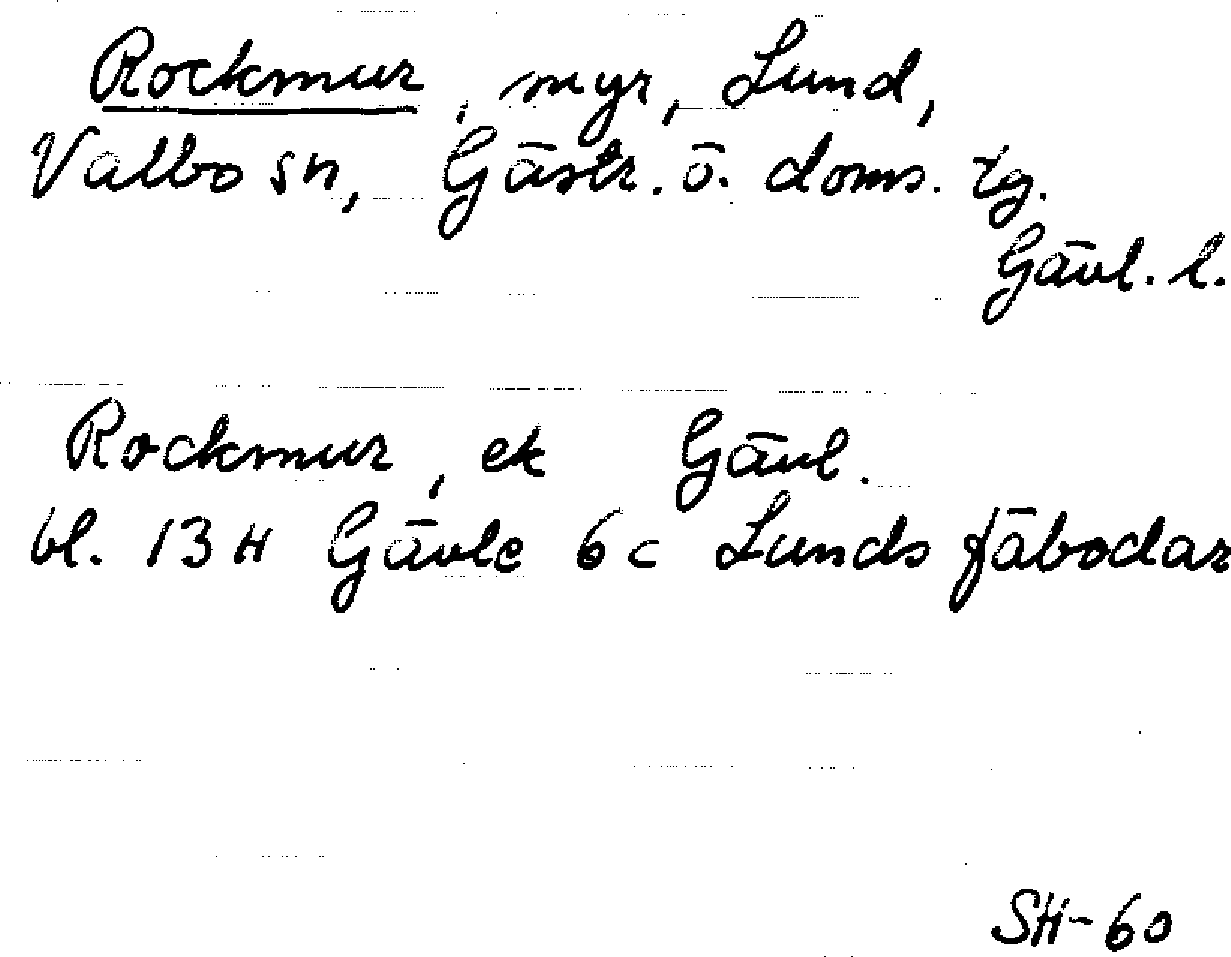 Rockmur, myr, Lund,
Valbo sn, Gästr. ö. doms. tg.
Gävl. l.
Rockmur, ek Gävl.
bl. 13 H Gävle 6 c Lunds fäbodar
SH-60